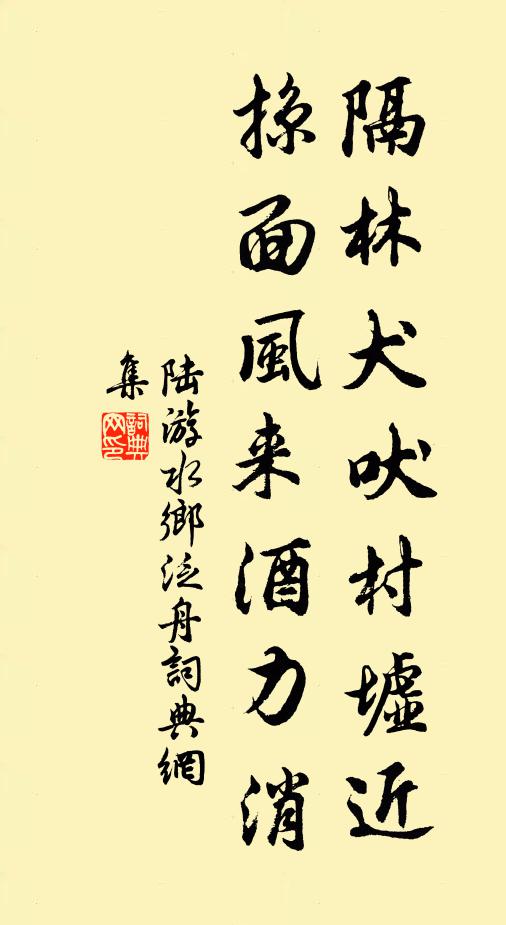 隔林犬吠村墟近
掠面風来酒力消
陆游水鄉泛舟詞典網
集
詞典网印